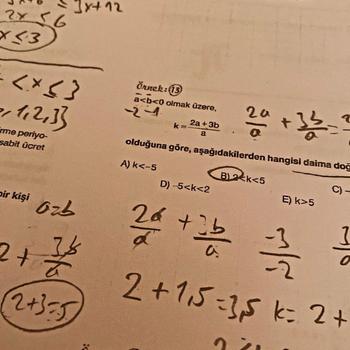 ≤ 3x+12
2x ≤ 6
x ≤ 3
< x ≤ 3
, 1, 2, 3}
rme periyo-
sabit ücret
Örnek: 13
a<b<0 olmak üzere,
-2 -1
k = 2a + 3b / a
2a/a + 3b/a =
olduğuna göre, aşağıdakilerden hangisi daima doğ
A) k<-5
B) 2<k<5
C) -
D) -5<k<2
E) k>5
bir kişi
a=b
2 + 3b/a
2+3=5
2a/a + 3b/a
-3/-2
2 + 1,5 = 3,5
k = 2 +